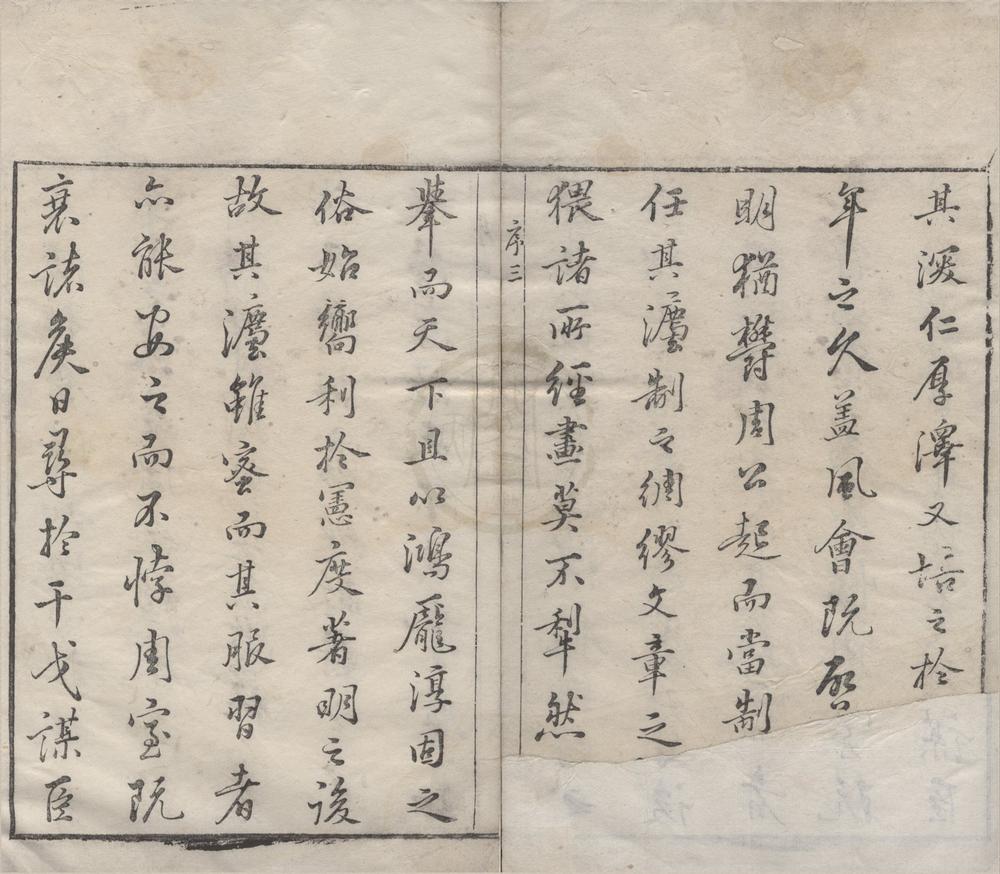 其深仁厚澤又培之於
年之久盖風會既啓
明猶欝周公起而當制
任其灋制之綢繆文章之
猥諸所經畫莫不犁然
序三
舉而天下且以鴻龐淳固之
俗始嚮利於憲度著明之後
故其灋雖密而其服習者
亦能安之而不悖周室既
衰諸侯日尋於干戈謀臣